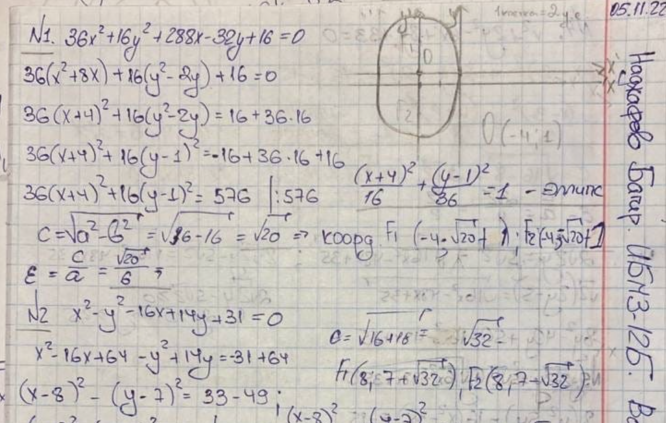 05.11.22
N1. 36x²+16y²+288x-32y+16=0
36(x²+8x)+16(y²-2y)+16=0
36(x+4)²+16(y²-2y)=16+36·16
36(x+4)²+16(y-1)²=-16+36·16+16
36(x+4)²+16(y-1)²=576 |:576
(x+4)²/16 + (y-1)²/36 =1 - эллипс
O(-4;1)
c=√(a²-b²)=√(36-16)=√20 => коорд F₁(-4;√20+1); F₂(-4;-√20+1)
ε=c/a=√20/6;
N2 x²-y²-16x+14y+31=0
x²-16x+64-y²+14y=-31+64
(x-8)²-(y-7)²=33-49;
c=√(16+16)=√32
F₁(8;7+√32); F₂(8;7-√32)
(x-8)² (y-7)²
Багир. ИБМ3-12Б.